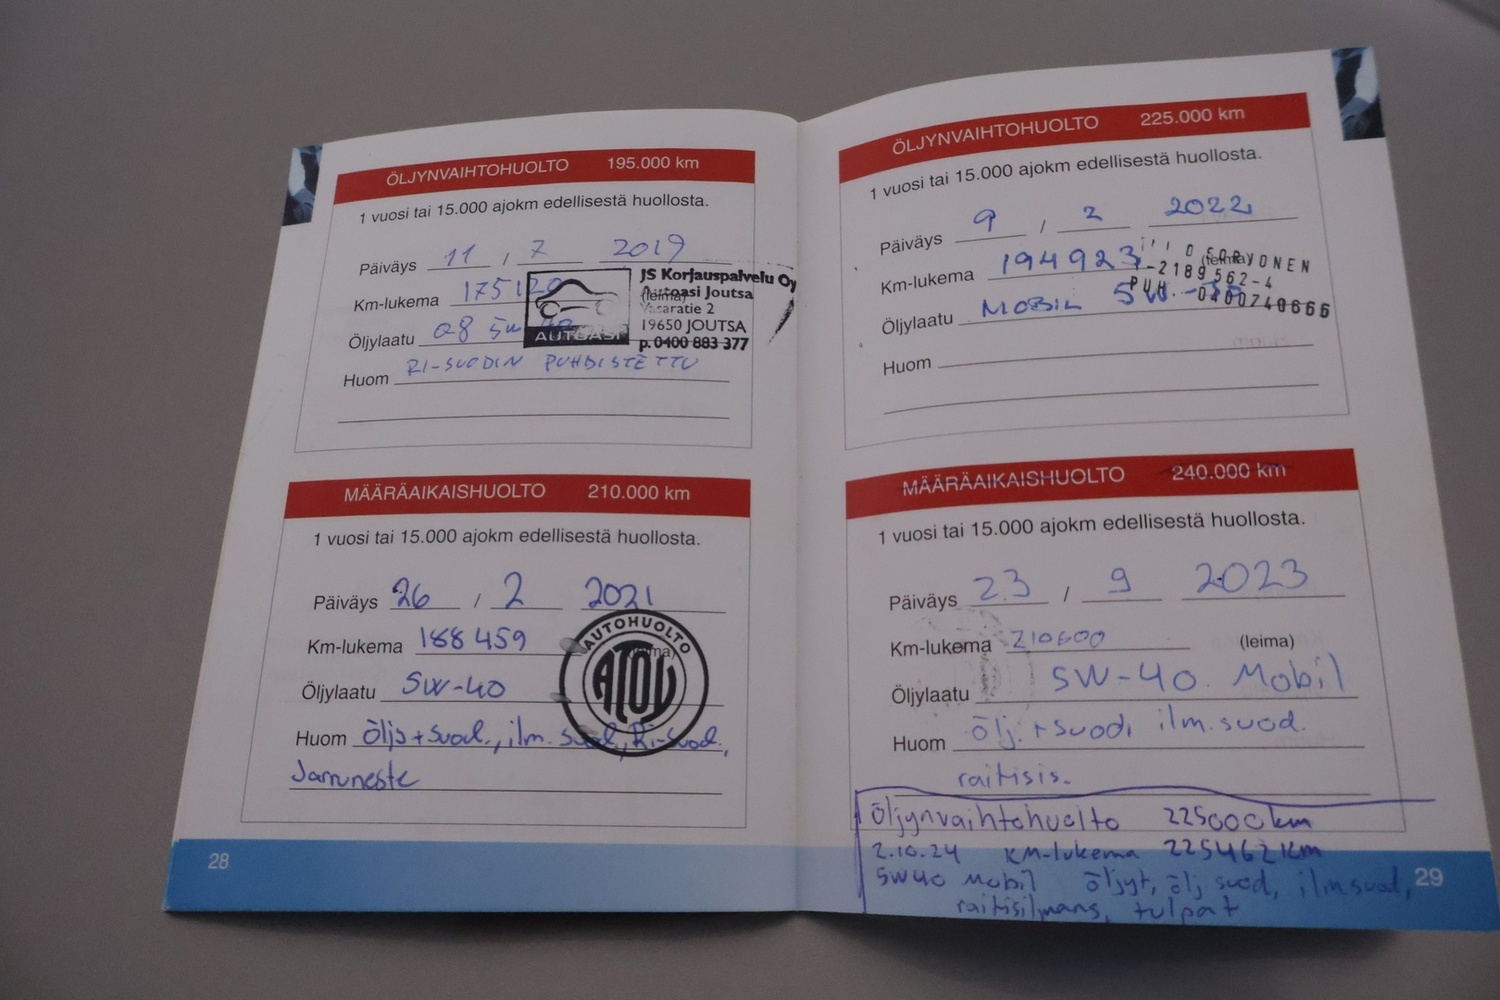 ÖLJYNVAIHTOHUOLTO 195.000 km
1 vuosi tai 15.000 ajokm edellisestä huollosta.
Päiväys 11 / 7 2019
Km-lukema 175120
Öljylaatu 08 5w
Huom RI-SUODIN PUHDISTETTU
AUTOASI
JS Korjauspalvelu Oy
Autoasi Joutsa
(leima)
Vasaratie 2
19650 JOUTSA
p. 0400 883 377
MÄÄRÄAIKAISHUOLTO 210.000 km
1 vuosi tai 15.000 ajokm edellisestä huollosta.
Päiväys 26 / 2 2021
Km-lukema 188459
(leima)
Öljylaatu 5W-40
Huom öljy+suod., ilm. suod., Ri-suod.,
Jarruneste
AUTOHUOLTO
ATOV
28
ÖLJYNVAIHTOHUOLTO 225.000 km
1 vuosi tai 15.000 ajokm edellisestä huollosta.
Päiväys 9 / 2 2022
Km-lukema 194923
(leima)
Öljylaatu MOBIL 5W-
Huom
O SORVONEN
2189562-4
PUH. 0400740666
MÄÄRÄAIKAISHUOLTO 240.000 km
1 vuosi tai 15.000 ajokm edellisestä huollosta.
Päiväys 23 / 9 2023
Km-lukema 210600 (leima)
Öljylaatu 5W-40. Mobil
Huom ölj.+suod, ilm.suod.
raitisis.
öljynvaihtohuolto 225000km
2.10.24 KM-lukema 225462km
5W40 Mobil öljyt, ölj suod, ilmsuod,
raitisilmans, tulpat
29